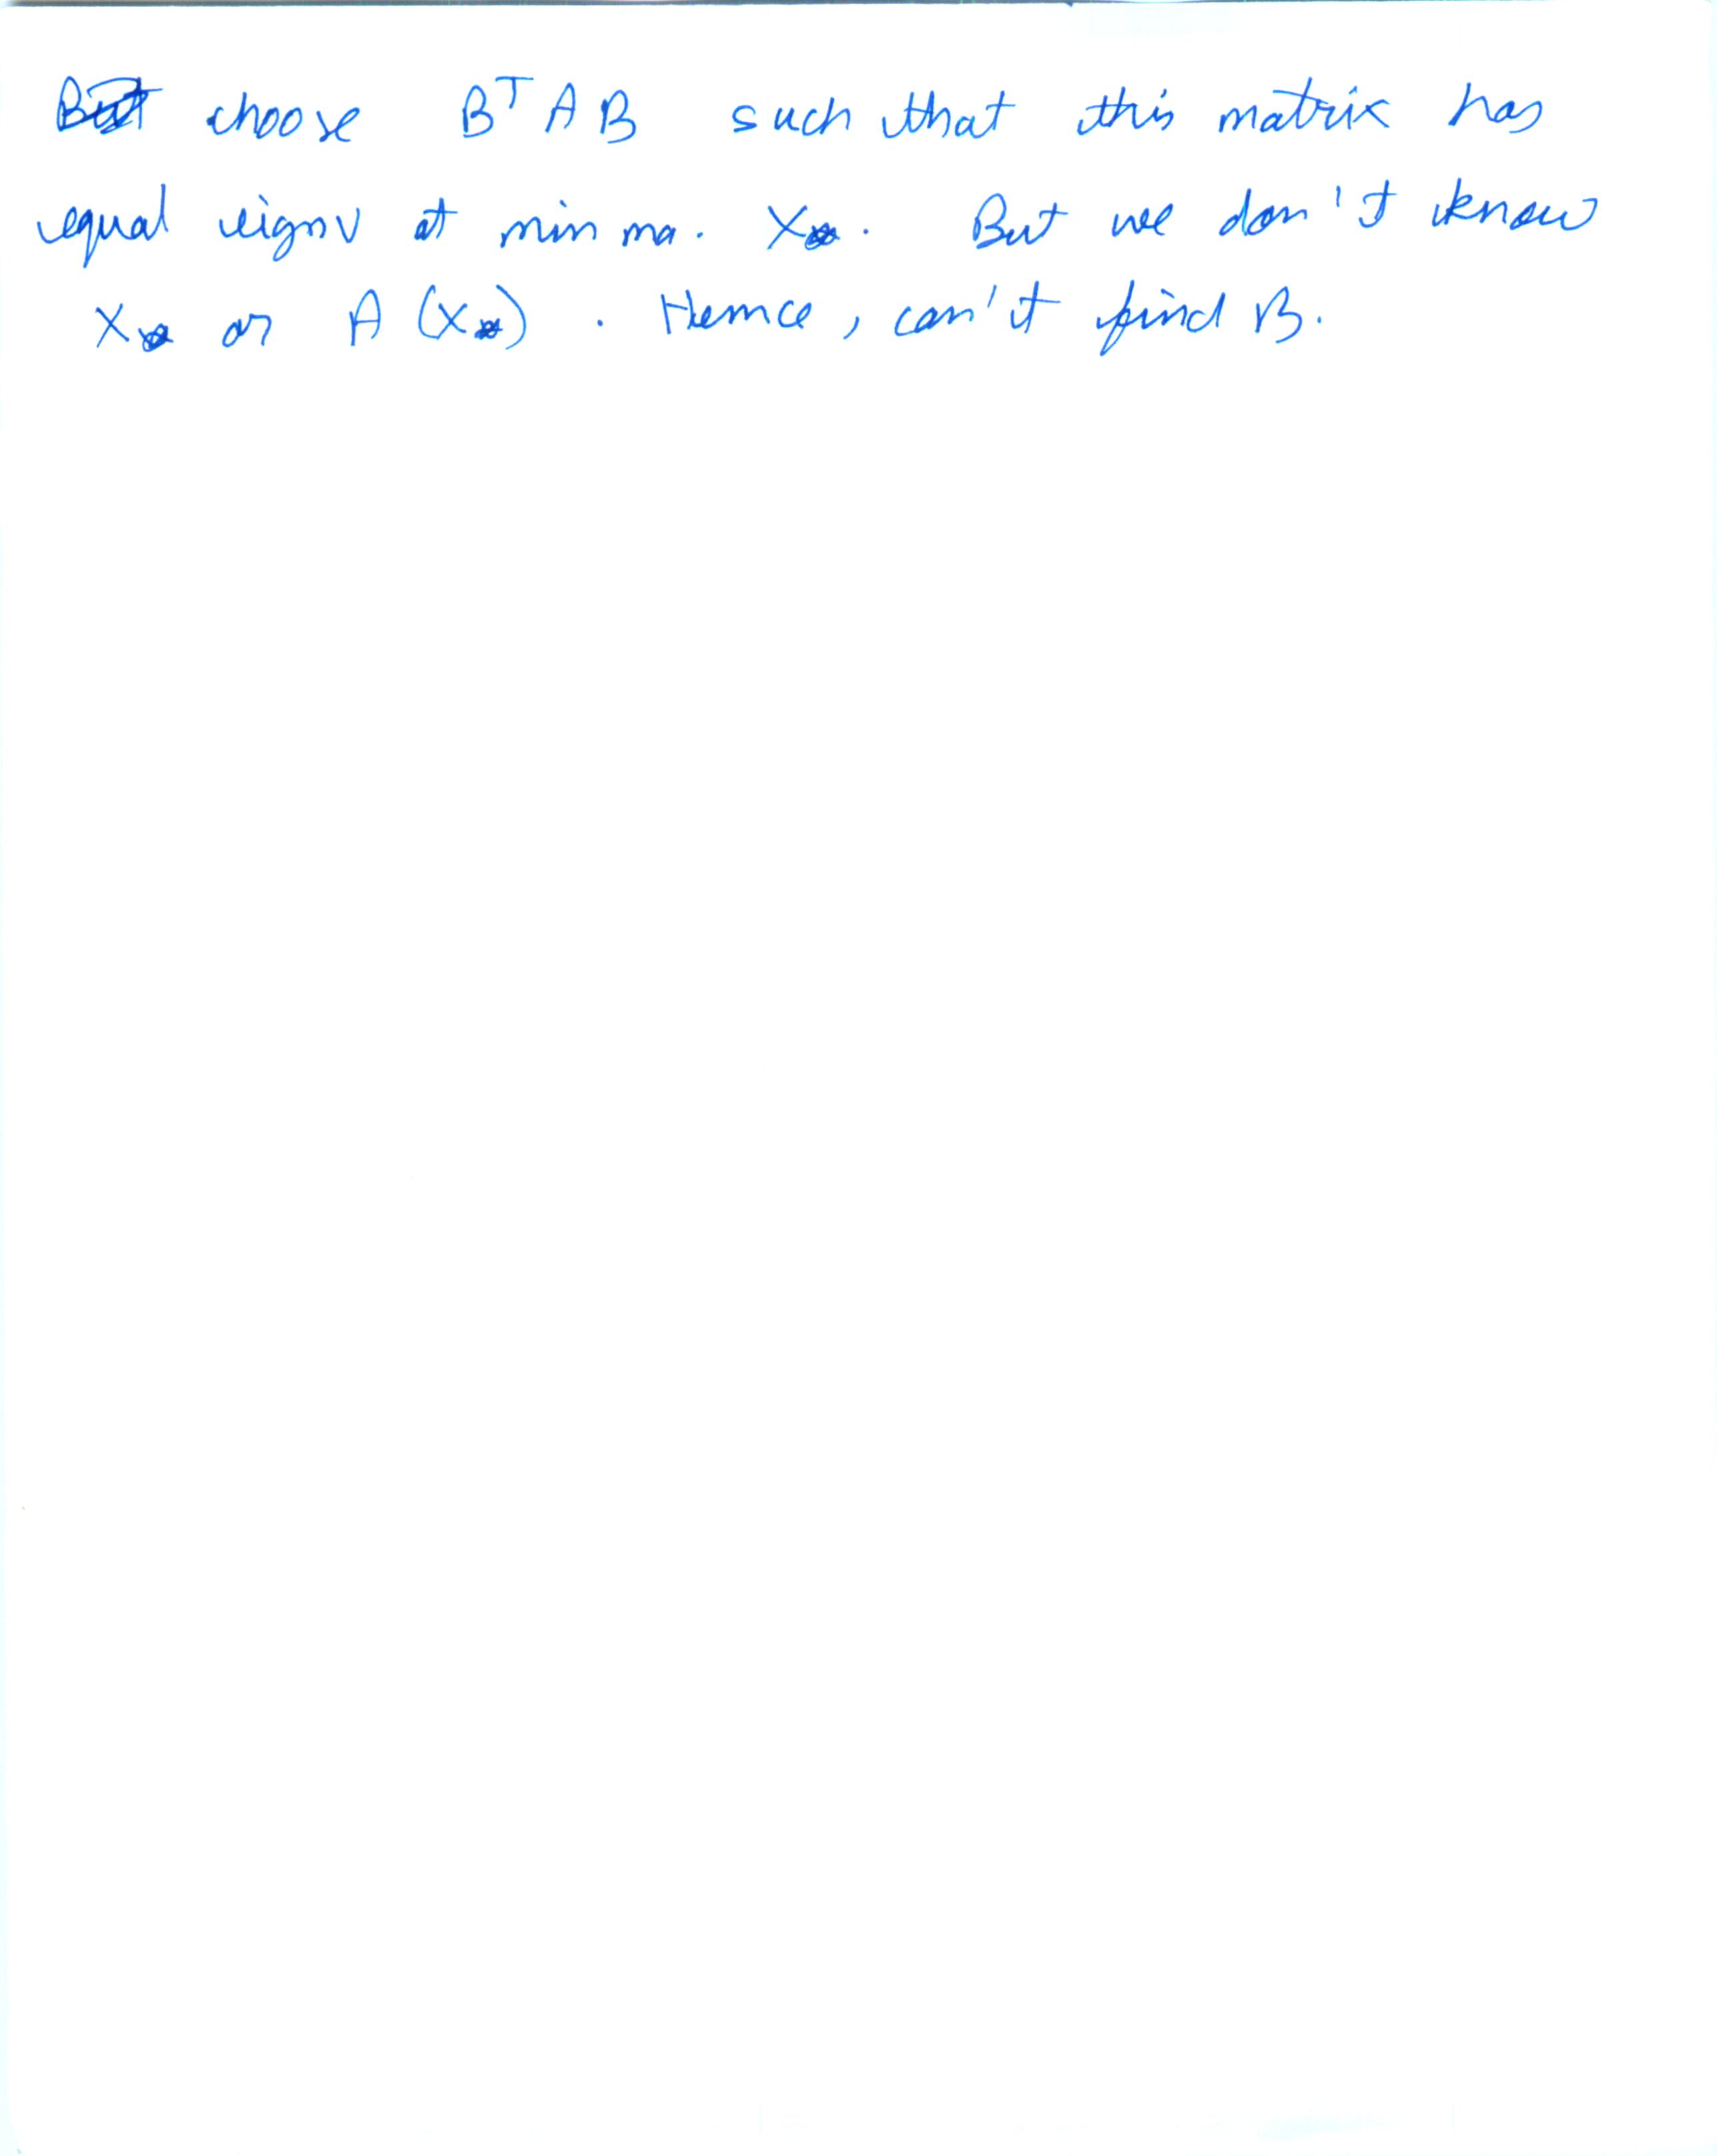 But choose BᵀAB such that this matrix has
equal eignv at minma. X*. But we don't know
X* or A(X*). Hence, can't find B.